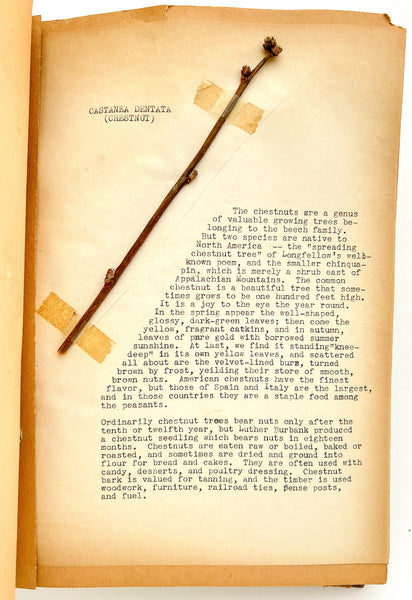 CASTANEA DENTATA
(CHESTNUT)
The chestnuts are a genus
of valuable growing trees be-
longing to the beech family.
But two species are native to
North America -- the "spreading
chestnut tree" of Longfellow's well-
known poem, and the smaller chinqua-
pin, which is merely a shrub east of
Appalachian Mountains. The common
chestnut is a beautiful tree that some-
times grows to be one hundred feet high.
It is a joy to the eye the year round.
In the spring appear the well-shaped,
glossy, dark-green leaves; then come the
yellow, fragrant catkins, and in autumn,
leaves of pure gold with borrowed summer
sunshine. At last, we find it standing"knee-
deep" in its own yellow leaves, and scattered
all about are the velvet-lined burs, turned
brown by frost, yeilding their store of smooth,
brown nuts. American chestnuts have the finest
flavor, but those of Spain and Italy are the largest,
and in those countries they are a staple food among
the peasants.
Ordinarily chestnut trees bear nuts only after the
tenth or twelfth year, but Luther Burbank produced
a chestnut seedling which bears nuts in eighteen
months. Chestnuts are eaten raw or boiled, baked or
roasted, and sometimes are dried and ground into
flour for bread and cakes. They are often used with
candy, desserts, and poultry dressing. Chestnut
bark is valued for tanning, and the timber is used
woodwork, furniture, railroad ties, fense posts,
and fuel.